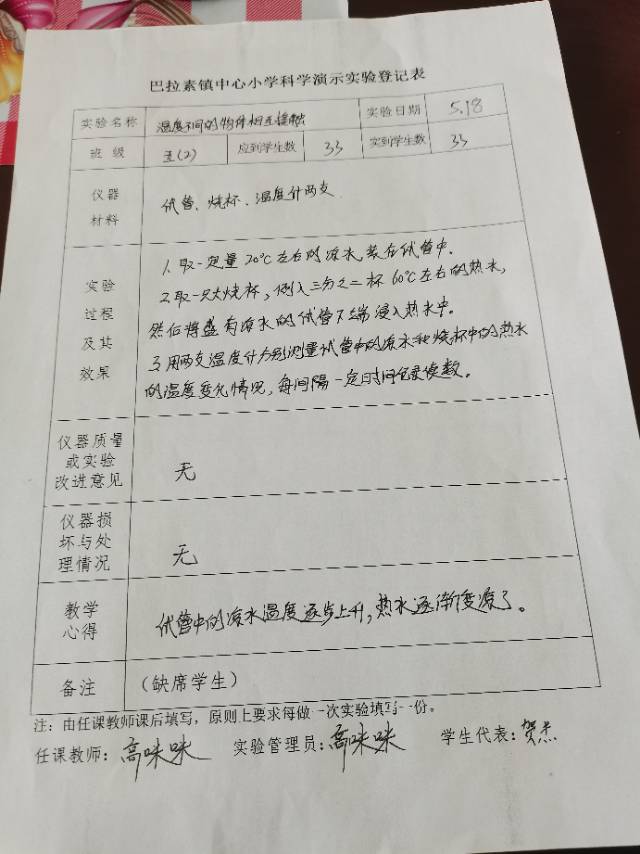 巴拉素镇中心小学科学演示实验登记表
实验名称 温度不同的物体相互接触 实验日期 5.18
班级 五(2) 应到学生数 33 实到学生数 33
仪器
材料
试管、烧杯、温度计两支
实验
过程
及其
效果
1、取一定量20℃左右的凉水,装在试管中.
2.取一只大烧杯,倒入三分之二杯60℃左右的热水,
然后将盛有凉水的试管下端浸入热水中。
3用两支温度计分别测量试管中的凉水和烧杯中的热水
的温度变化情况,每间隔一定时间记录读数。
仪器质量
或实验
改进意见
无
仪器损
坏与处
理情况
无
教学
心得
试管中的凉水温度逐步上升,热水逐渐变凉了。
备注 (缺席学生)
注:由任课教师课后填写,原则上要求每做一次实验填写一份。
任课教师:高咪咪 实验管理员:高咪咪 学生代表:贺杰